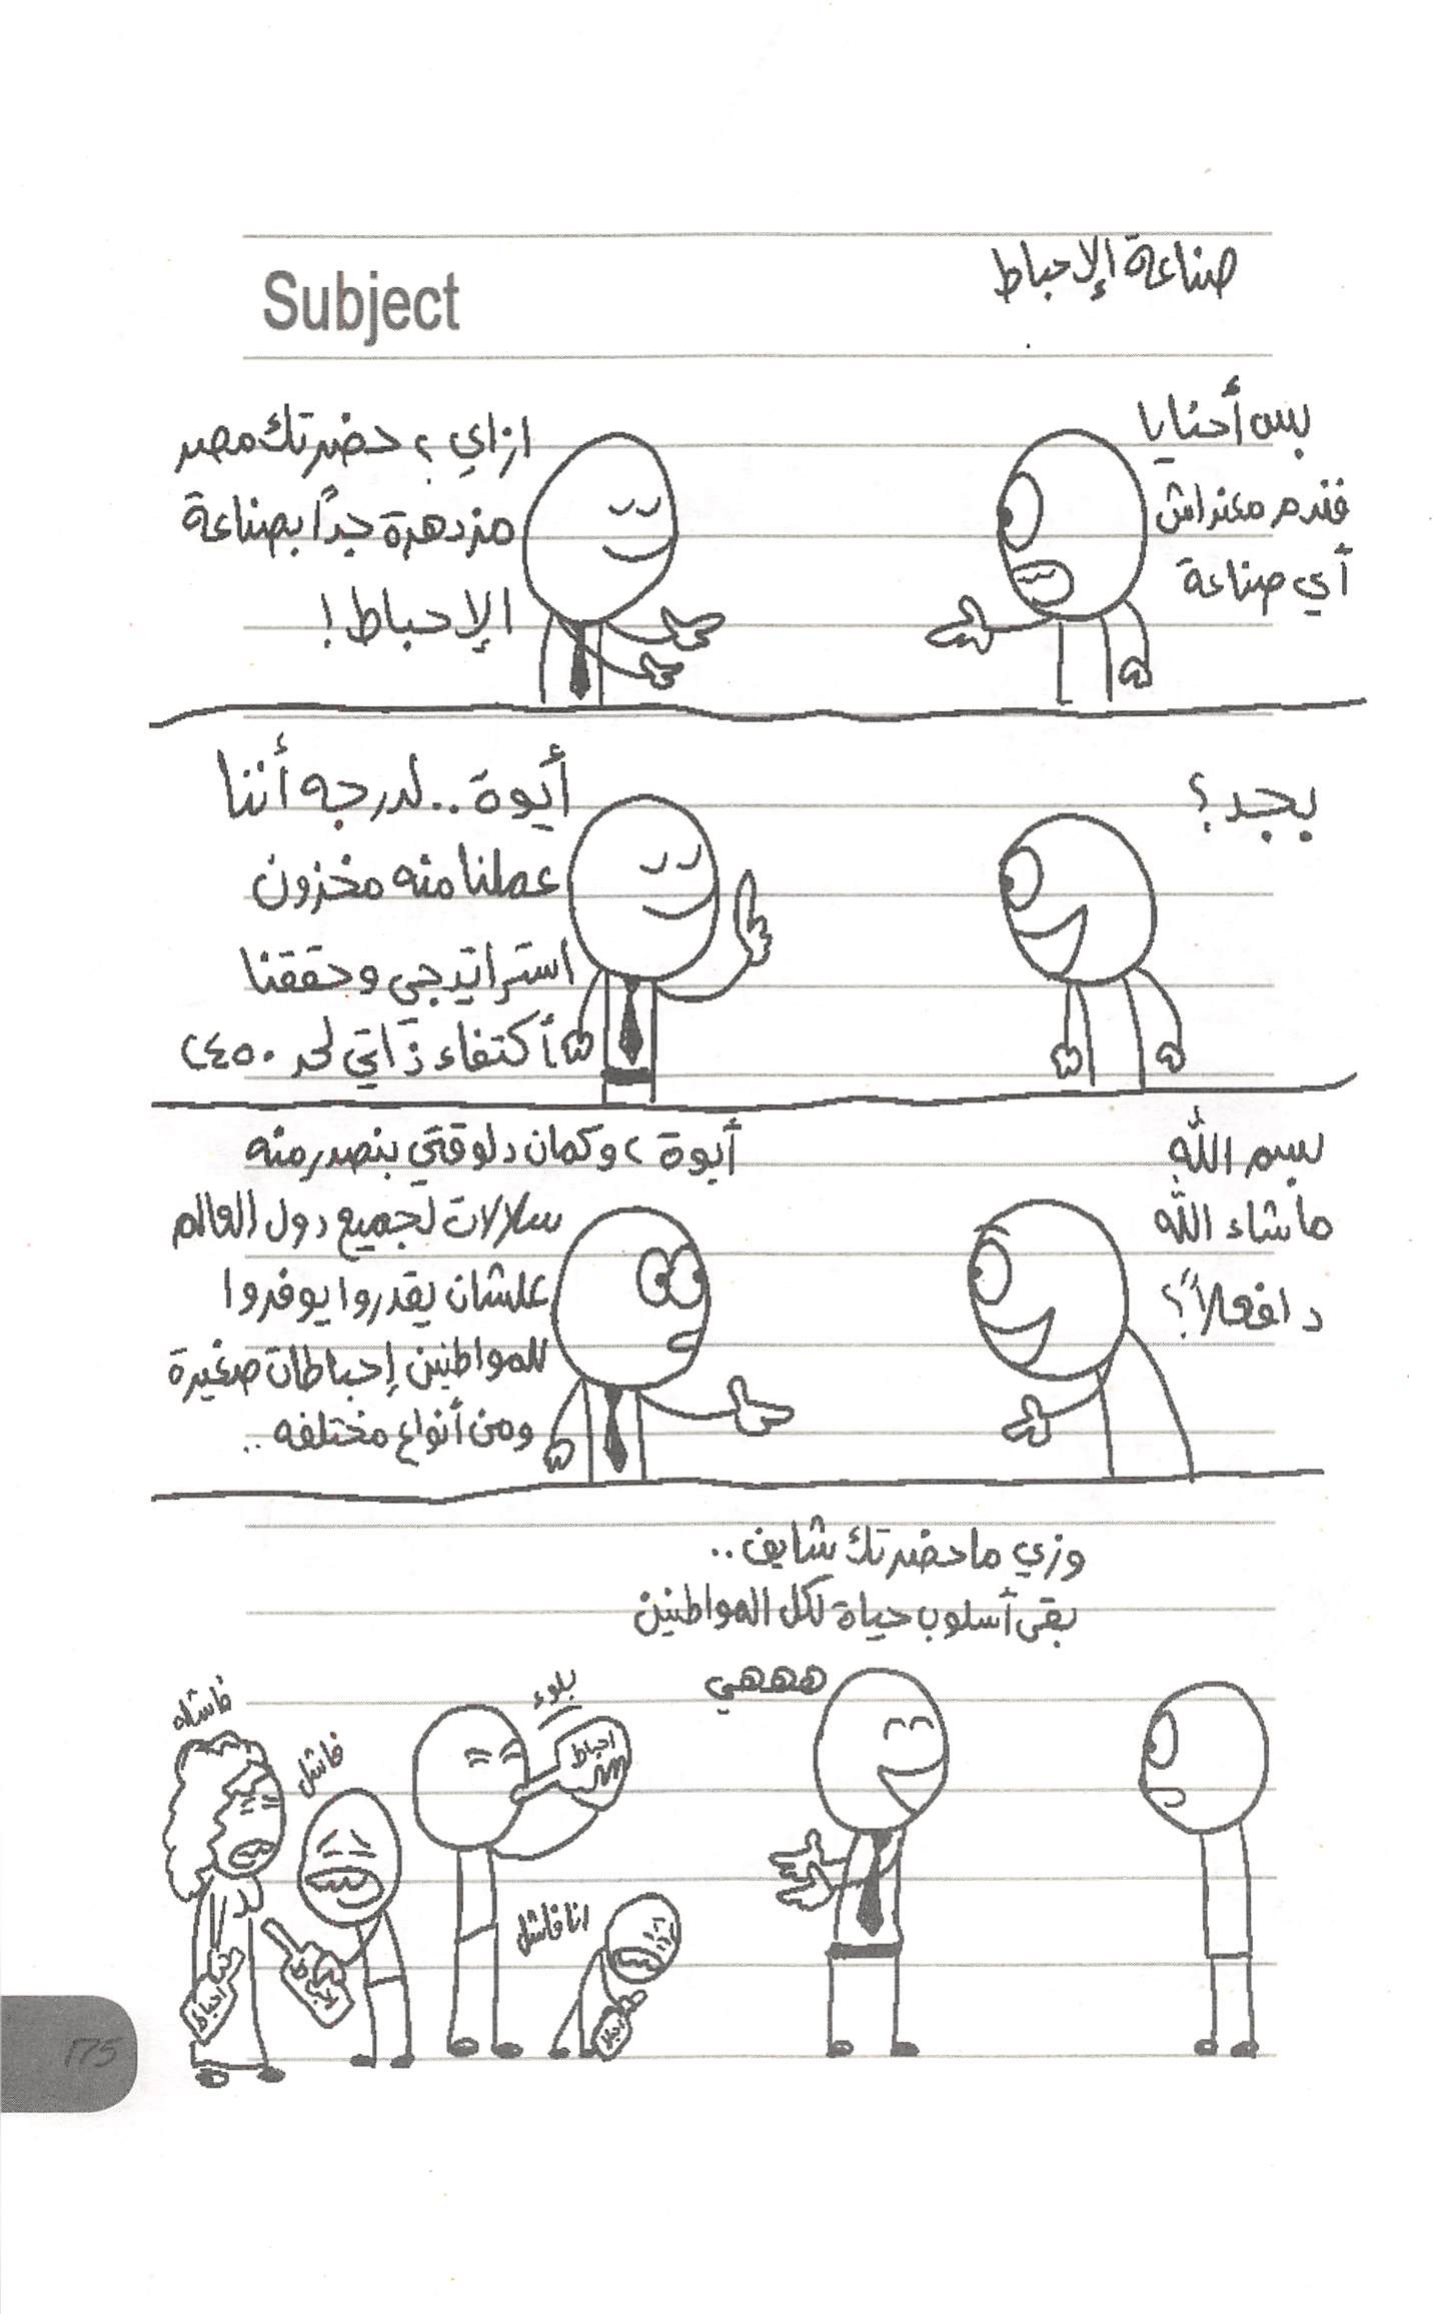 صناعة الإحباط
Subject
بس أحنا يا
فندم معندناش
أي صناعة
ازاي، حضرتك مصر
مزدهرة جداً بصناعة
الإحباط!
بجد؟
أيوة.. لدرجه أننا
عملنا منه مخزون
استراتيجي وحققنا
أكتفاء ذاتي لحد ٢٤٥٠
بسم الله
ماشاء الله
دا فعلاً؟
أيوة، وكمان دلوقتي بنصدر منه
سلالات لجميع دول العالم
علشان يقدروا يوفروا
للمواطنين إحباطات صغيرة
ومن أنواع مختلفه ..
وزي ما حضرتك شايف ..
بقى أسلوب حياة لكل المواطنين
ههههي
بلوء
احباط
فاشله
فاشل
انا فاشل
احباط
احباط
احباط
175